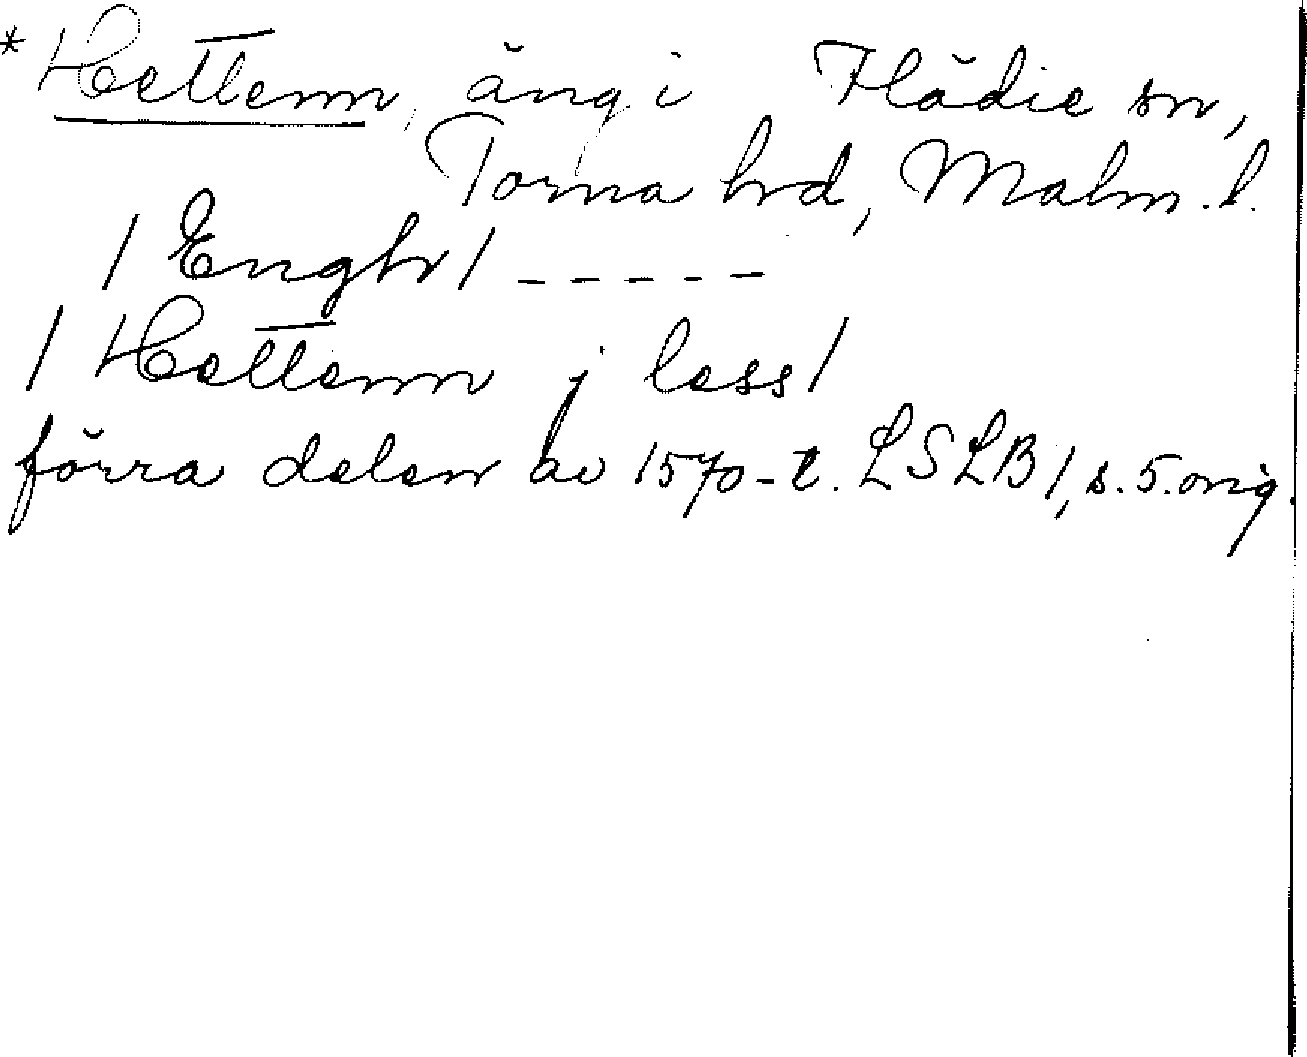 *Hettenn, äng i Flädie sn,
Torna hrd, Malm. l.
/ Engh / - - - - -
/ Hettenn j less /
förra delen av 1570-t. LSLB 1, s. 5. orig.